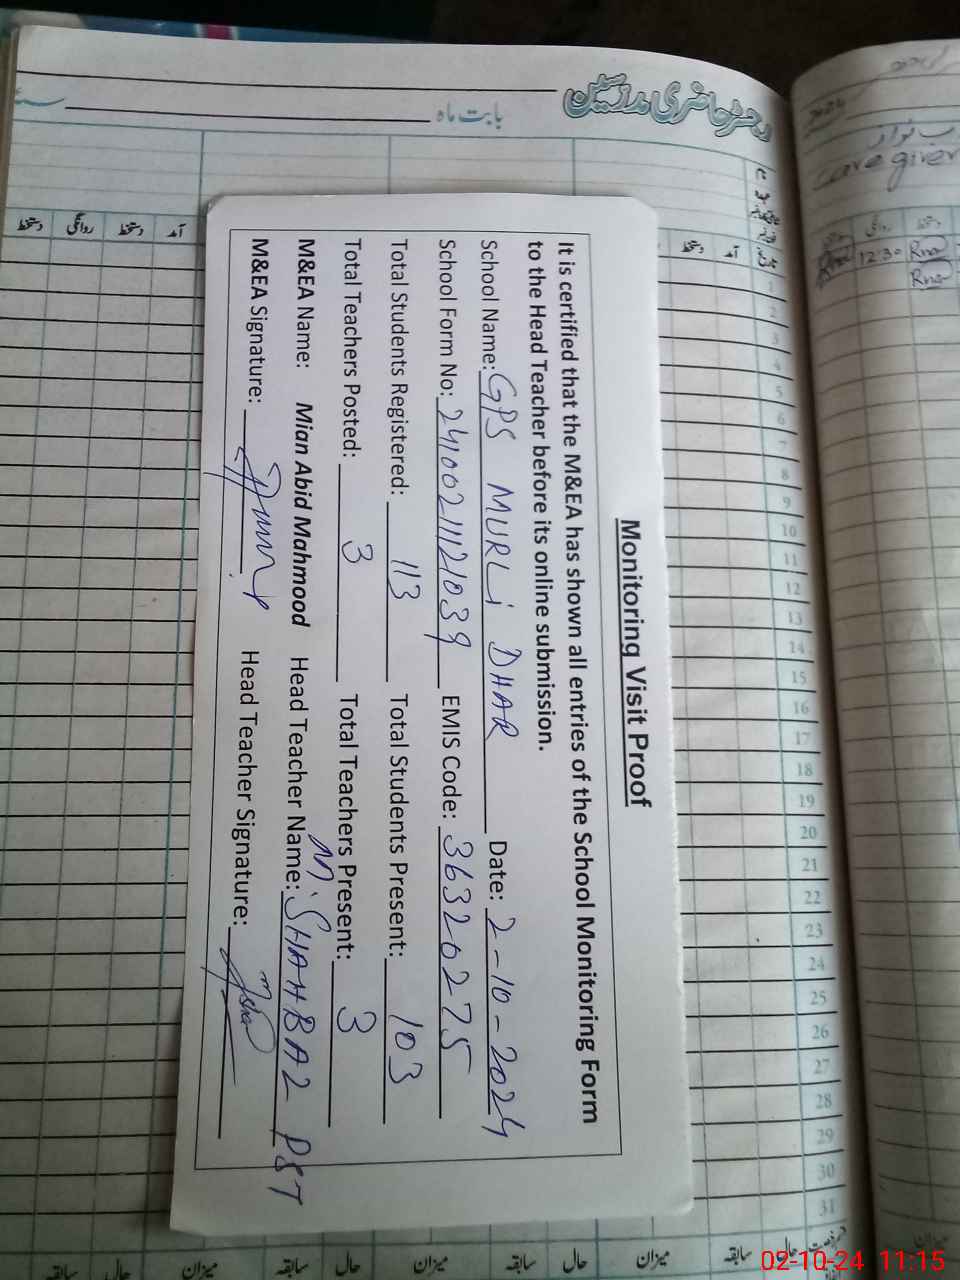 رجسٹر حاضری مدرسین
بابت ماہ
آمد دستخط روانگی دستخط
تاریخ آمد دستخط
Monitoring Visit Proof
It is certified that the M&EA has shown all entries of the School Monitoring Form
to the Head Teacher before its online submission.
School Name: GPS MURLi DHAR Date: 2-10-2024
School Form No: 24100211121039 EMIS Code: 36320275
Total Students Registered: 113 Total Students Present: 103
Total Teachers Posted: 3 Total Teachers Present: 3
M&EA Name: Mian Abid Mahmood Head Teacher Name: M. SHAHBAZ PST
M&EA Signature: Head Teacher Signature:
1
2
3
4
5
6
7
8
9
10
11
12
13
14
15
16
17
18
19
20
21
22
23
24
25
26
27
28
29
30
31
حال سابقہ میزان حال سابقہ میزان حال سابقہ میزان حال سابقہ
Care giver
روانگی دستخط
12:30
02-10-24 11:15